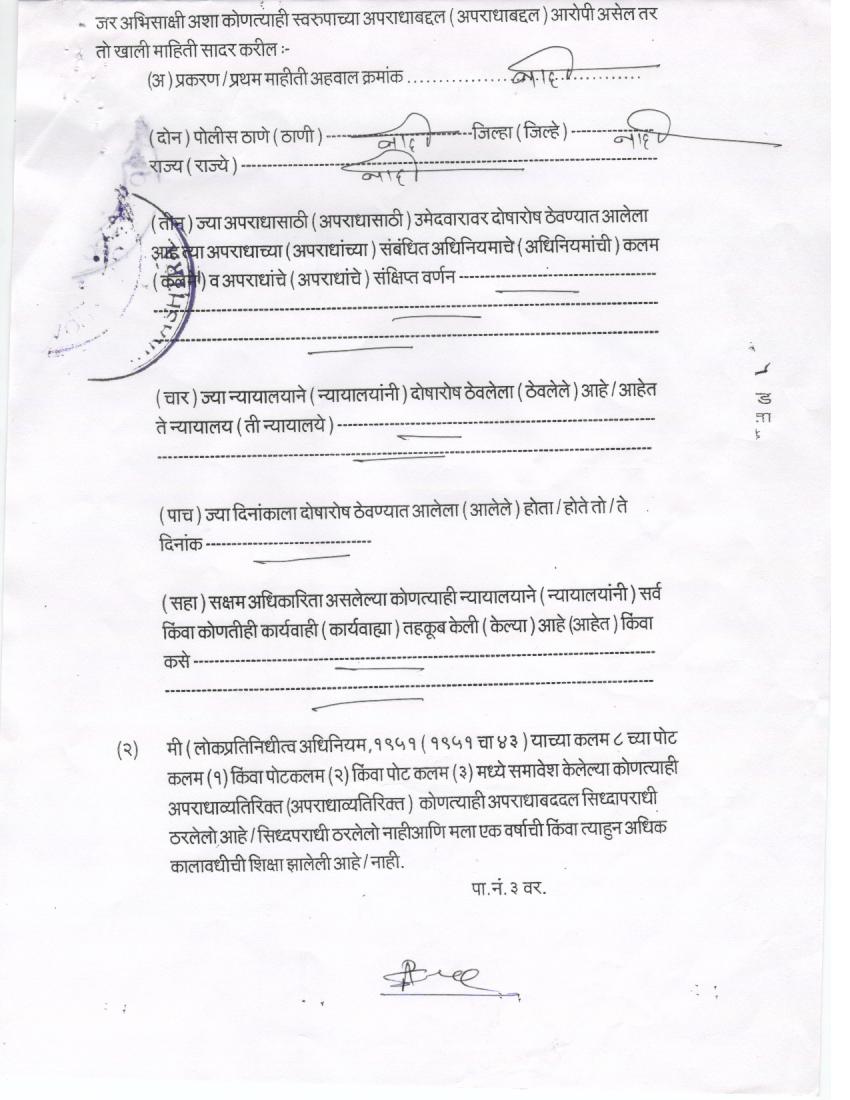 जर अभिसाक्षी अशा कोणत्याही स्वरुपाच्या अपराधाबद्दल ( अपराधाबद्दल ) आरोपी असेल तर
तो खाली माहिती सादर करील :-
(अ ) प्रकरण / प्रथम माहीती अहवाल क्रमांक ................ नाही ............
( दोन ) पोलीस ठाणे ( ठाणी ) -------- नाही --------जिल्हा ( जिल्हे ) -------- नाही
राज्य ( राज्ये ) ---------------- नाही ----------------
( तीन ) ज्या अपराधासाठी ( अपराधासाठी ) उमेदवारावर दोषारोष ठेवण्यात आलेला
आहे त्या अपराधाच्या ( अपराधांच्या ) संबंधित अधिनियमाचे ( अधिनियमांची ) कलम
( कलमे ) व अपराधांचे ( अपराधांचे ) संक्षिप्त वर्णन --------------------------------
( चार ) ज्या न्यायालयाने ( न्यायालयांनी ) दोषारोष ठेवलेला ( ठेवलेले ) आहे / आहेत
ते न्यायालय ( ती न्यायालये ) --------------------------------
( पाच ) ज्या दिनांकाला दोषारोष ठेवण्यात आलेला ( आलेले ) होता / होते तो / ते
दिनांक --------------------------------
( सहा ) सक्षम अधिकारिता असलेल्या कोणत्याही न्यायालयाने ( न्यायालयांनी ) सर्व
किंवा कोणतीही कार्यवाही ( कार्यवाह्या ) तहकूब केली ( केल्या ) आहे (आहेत ) किंवा
कसे --------------------------------
(२) मी ( लोकप्रतिनिधीत्व अधिनियम,१९५१ ( १९५१ चा ४३ ) याच्या कलम ८ च्या पोट
कलम (१) किंवा पोटकलम (२) किंवा पोट कलम (३) मध्ये समावेश केलेल्या कोणत्याही
अपराधाव्यतिरिक्त (अपराधाव्यतिरिक्त ) कोणत्याही अपराधाबददल सिध्दापराधी
ठरलेलो आहे / सिध्दपराधी ठरलेलो नाहीआणि मला एक वर्षाची किंवा त्याहुन अधिक
कालावधीची शिक्षा झालेली आहे / नाही.
पा.नं. ३ वर.